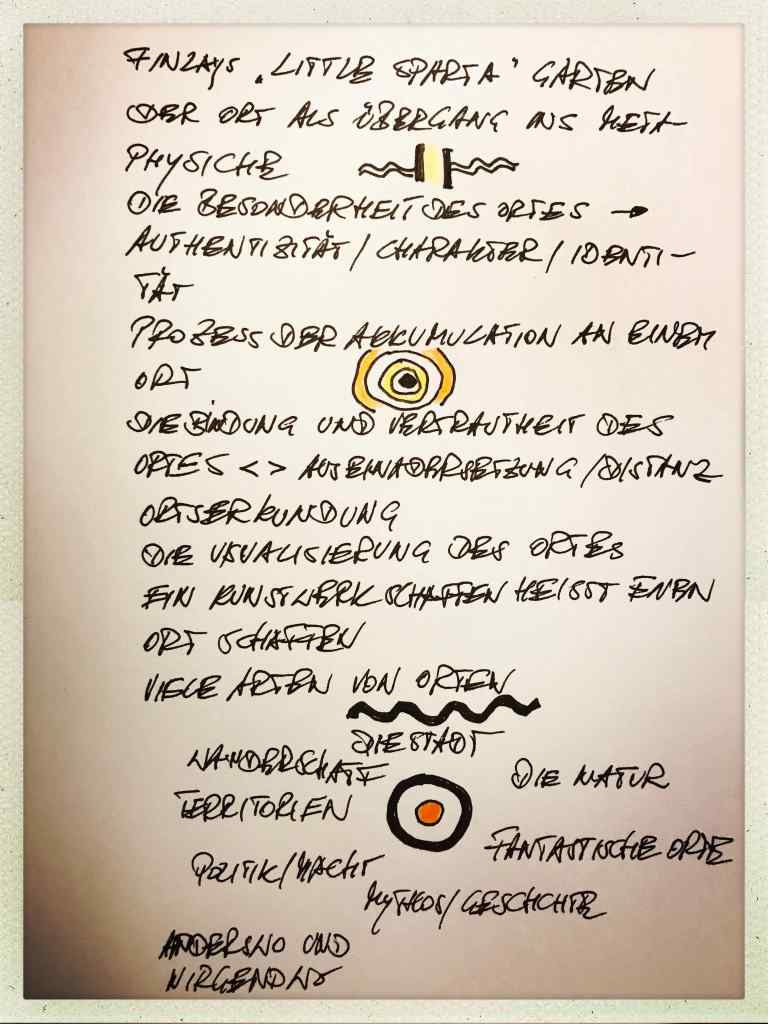 FINLAYS "LITTLE SPARTA" GARTEN
ODER ORT ALS ÜBERGANG INS META-
PHYSICHE
DIE BESONDERHEIT DES ORTES →
AUTHENTIZITÄT / CHARAKTER / IDENTI-
TÄT
PROZESS DER AKKUMULATION AN EINEM
ORT
DIE BINDUNG UND VERTRAUTHEIT DES
ORTES < > AUSEINADERSETZUNG / DISTANZ
ORTSERKUNDUNG
DIE VISUALISIERUNG DES ORTES
EIN KUNSTWERK SCHAFFEN HEISST EINEN
ORT SCHAFFEN
VIELE ARTEN VON ORTEN
DIE STADT
WANDERSCHAFT
DIE NATUR
TERRITORIEN
FANTASTISCHE ORTE
POLITIK / MACHT
MYTHOS / GESCHICHTE
ANDERSWO UND
NIRGENDWO